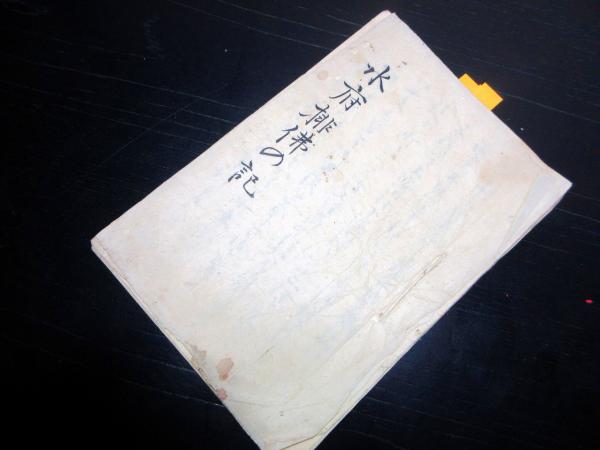 水府排佛の記